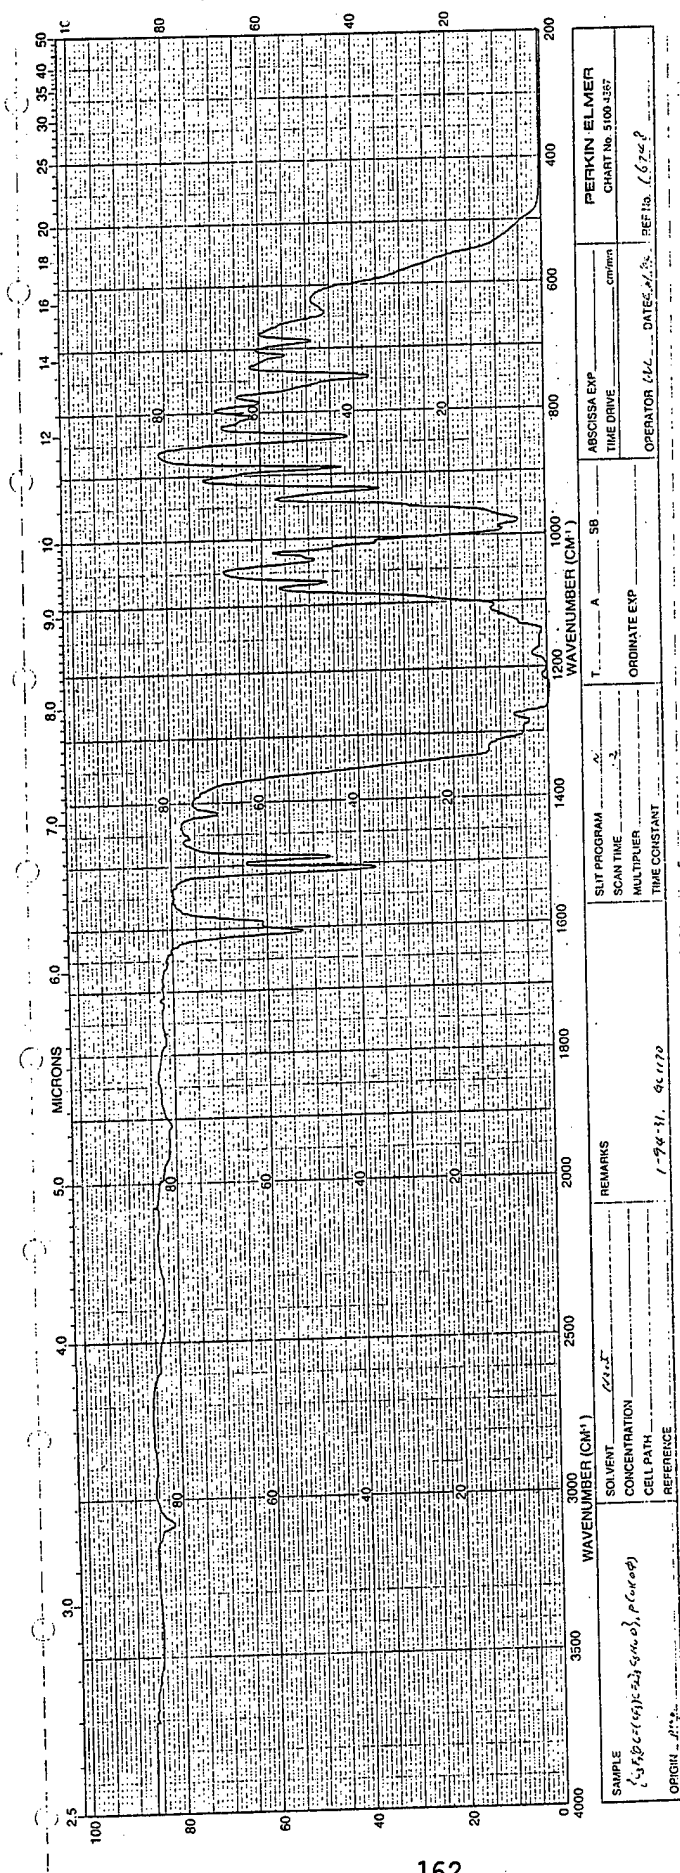 2.5 3.0 4.0 5.0 MICRONS 6.0 7.0 8.0 9.0 10 12 14 16 18 20 25 30 35 40 50
100
80 80 80 80 80 80
60 60 60 60 60
40 40 40 40 40
20 20 20 20 20
0
4000 3500 3000 2500 2000 1800 1600 1400 1200 1000 800 600 400 200
WAVENUMBER (CM⁻¹) WAVENUMBER (CM⁻¹)
SAMPLE
ORIGIN
SOLVENT
CONCENTRATION
CELL PATH
REFERENCE
REMARKS
1-94-31,
SLIT PROGRAM N
SCAN TIME 12
MULTIPLIER
TIME CONSTANT
T A SB
ORDINATE EXP
ABSCISSA EXP
TIME DRIVE cm/min
OPERATOR DATE REF No.
PERKIN-ELMER
CHART No. 5100-4367
162